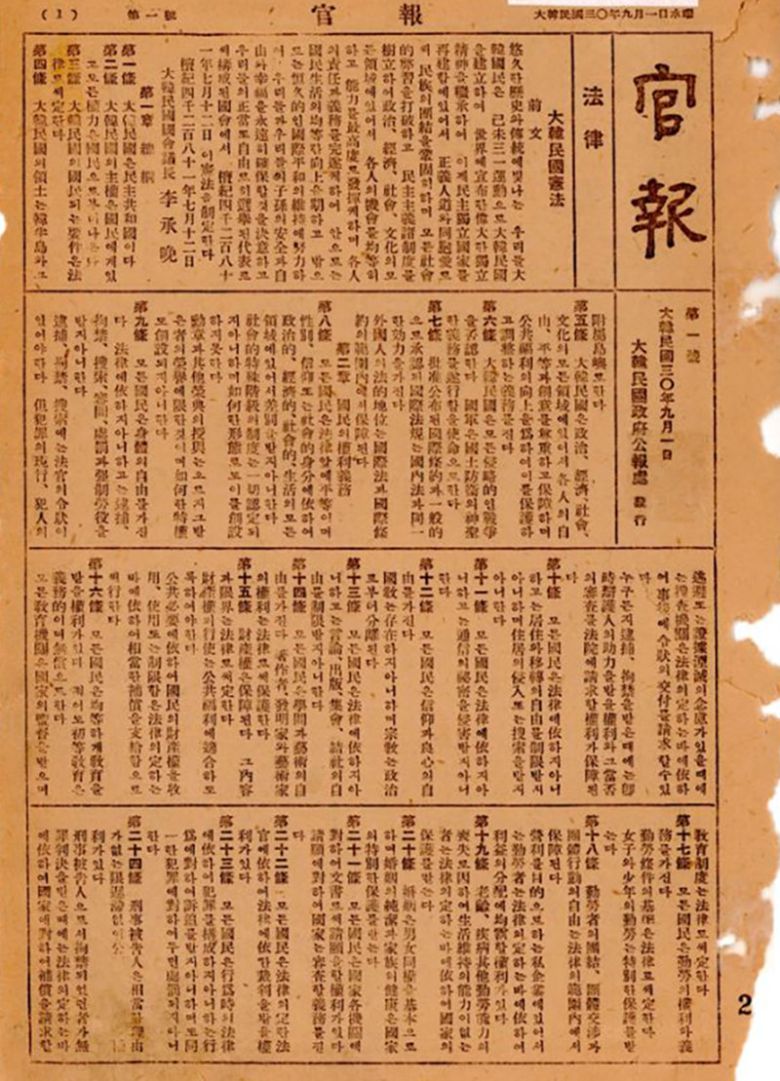 (1) 第一號 官報 大韓民國三〇年九月一日水曜
官報
第一號
大韓民國三〇年九月一日
大韓民國政府公報處 發行
法律
大韓民國憲法
前文
悠久한歷史와傳統에빛나는 우리들大
韓國民은 己未三一運動으로大韓民國
을建立하여 世界에宣布한偉大한獨立
精神을繼承하여 이제民主獨立國家를
再建함에있어서 正義人道와同胞愛로
써 民族의團結을鞏固히하며 모든社會
的弊習을打破하고 民主主義諸制度를
樹立하여政治、經濟、社會、文化의모
든領域에있어서 各人의機會를均等히
하고 能力을最高度로發揮케하며 各人
의責任과義務를完遂케하여 안으로는
國民生活의均等한向上을期하고 밖으
로는恒久的인國際平和의維持에努力하
여 우리들과우리들의子孫의安全과自
由와幸福을永遠히確保할것을決意하고
우리들의正當또自由로히選擧된代表로
써構成된國會에서 檀紀四千二百八十
一年七月十二日 이憲法을制定한다
檀紀四千二百八十一年七月十二日
大韓民國國會議長 李承晩
第一章 總綱
第一條 大韓民國은民主共和國이다
第二條 大韓民國의主權은國民에게있
고모든權力은國民으로부터나온다
第三條 大韓民國의國民되는要件은法
律로써定한다
第四條 大韓民國의領土는韓半島와그
附屬島嶼로한다
第五條 大韓民國은政治、經濟、社會、
文化의모든領域에있어서各人의自
由、平等과創意를尊重하고保障하며
公共福利의向上을爲하여이를保護하
고調整하는義務를진다
第六條 大韓民國은모든侵略的인戰爭
을否認한다 國軍은國土防衛의神聖
한義務를遂行함을使命으로한다
第七條 批准公布된國際條約과一般的
으로承認된國際法規는國內法과同一
한効力을가진다
外國人의法的地位는國際法과國際條
約의範圍內에서保障된다
第二章 國民의權利義務
第八條 모든國民은法律앞에平等이며
性別、信仰또는社會的身分에依하여
政治的、經濟的、社會的、生活의모든
領域에있어서差別을받지아니한다
社會的特殊階級의制度는一切認定되
지아니하며如何한形態로도이를創設
하지못한다
勳章과其他榮典의授與는오로지그받
은者의榮譽에限한것이며如何한特權
도創設되지아니한다
第九條 모든國民은身體의自由를가진
다 法律에依하지아니하고는逮捕、
拘禁、搜索、審問、處罰과强制勞役을
받지아니한다
逮捕、拘禁、搜索에는法官의令狀이
있어야한다 但犯罪의現行、犯人의
逃避또는證據湮滅의念慮가있을때에
는搜査機關은法律의定하는바에依하
여事後에令狀의交付를請求할수있
다
누구든지逮捕、拘禁을받은때에는卽
時辯護人의助力을받을權利와그當否
의審査를法院에請求할權利가保障된
다
第十條 모든國民은法律에依하지아니
하고는居住와移轉의自由를制限받지
아니하며住居의侵入또는搜索을받지
아니한다
第十一條 모든國民은法律에依하지아
니하고는通信의秘密을侵害받지아니
한다
第十二條 모든國民은信仰과良心의自
由를가진다
國敎는存在하지아니하며宗敎는政治
로부터分離된다
第十三條 모든國民은法律에依하지아
니하고는言論、出版、集會、結社의自
由를制限받지아니한다
第十四條 모든國民은學問과藝術의自
由를가진다 著作者、發明家와藝術家
의權利는法律로써保護한다
第十五條 財產權은保障된다 그內容
과限界는法律로써定한다
財產權의行使는公共福利에適合하도
록하여야한다
公共必要에依하여國民의財產權을收
用、使用또는制限함은法律의定하는
바에依하여相當한補償을支給함으로
써行한다
第十六條 모든國民은均等하게敎育을
받을權利가있다 적어도初等敎育은
義務的이며無償으로한다
모든敎育機關은國家의監督을받으며
敎育制度는法律로써定한다
第十七條 모든國民은勤勞의權利와義
務를가진다
勤勞條件의基準은法律로써定한다
女子와少年의勤勞는特別한保護를받
는다
第十八條 勤勞者의團結、團體交涉과
團體行動의自由는法律의範圍內에서
保障된다
營利를目的으로하는私企業에있어서
는勤勞者는法律의定하는바에依하여
利益의分配에均霑할權利가있다
第十九條 老齡、疾病其他勤勞能力의
喪失로因하여生活維持의能力이없는
者는法律의定하는바에依하여國家의
保護를받는다
第二十條 婚姻은男女同權을基本으로
하며婚姻의純潔과家族의健康은國家
의特別한保護를받는다
第二十一條 모든國民은國家各機關에
對하여文書로써請願을할權利가있다
請願에對하여國家는審査할義務를진
다
第二十二條 모든國民은法律의定한法
官에依하여法律에依한裁判을받을權
利가있다
第二十三條 모든國民은行爲時의法律
에依하여犯罪를構成하지아니하는行
爲에對하여訴追를받지아니하며또同
一한犯罪에對하여두번處罰되지아니
한다
第二十四條 刑事被告人은相當한理由
가없는限遲滯없이公
利가있다
刑事被告人으로서拘禁되었던者가無
罪判決을받은때에는法律의定하는바
에依하여國家에對하여補償을請求할
2